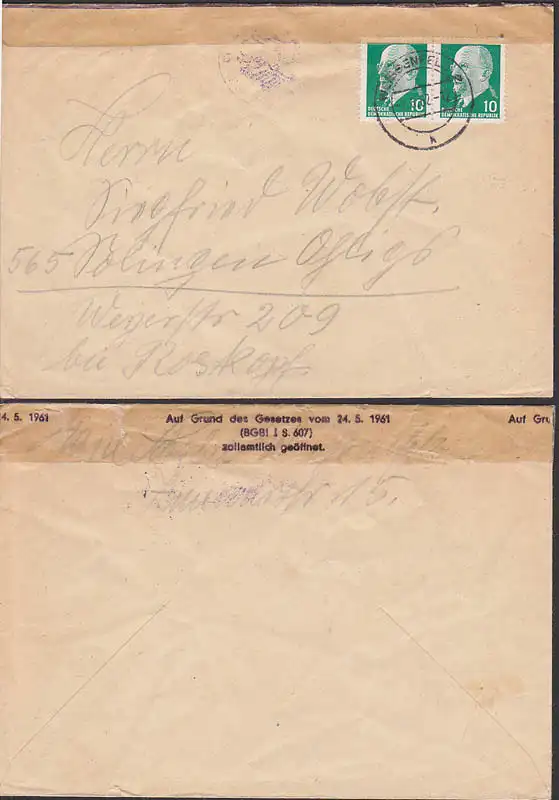 10
DEUTSCHE
DEMOKRATISCHE REPUBLIK
10
DEUTSCHE
DEMOKRATISCHE REPUBLIK
Herrn
Siegfried Wobst.
565 Solingen Ohligs
Weyerstr 209
bei Roskopf.
24. 5. 1961
Auf Grund des Gesetzes vom 24. 5. 1961
(BGBl I S. 607)
zollamtlich geöffnet.
Auf Gru
str 15.